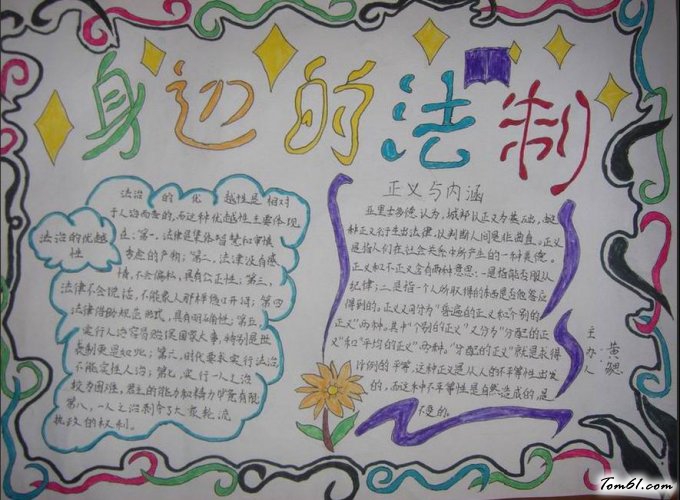 身边的法制
法治的优越性
法治的优越性是相对
于人治而言的,而这种优越性主要体现
在:第一,法律是集体智慧和审慎
考虑的产物;第二,法律没有感
情,不会偏私,具有公正性;第三,
法律不会说话,不能象人那样信口开河;第四
法律借助规范形式,具有明确性;第五,
实行人治容易贻误国家大事,特别是世
袭制更是如此;第六,时代要求实行法治,
不能实行人治;第七,实行一人之治
较为困难,君主的能力和精力毕竟有限
第八,一人之治剥夺了大家轮流
执政的权利。
正义与内涵
亚里士多德认为,城邦以正义为基础,由
种正义衍生出法律,以判断人间是非曲直。正义
是指人们在社会关系中所产生的一种美德。
正义和不正义含有两种意思:一是指能否服从
纪律;二是指一个人所取得的东西是否他应
得到的。正义又可分为"普遍的正义和个别的
正义"两种。其中"个别的正义"又分为"分配的正
义"和"平均的正义"两种。"分配的正义"就是求得
比例的平等,这种正义是从人的不平等性出发
的,而这种不平等性是自然造成的,是
不变的。
主办人
黄
Tom61.com